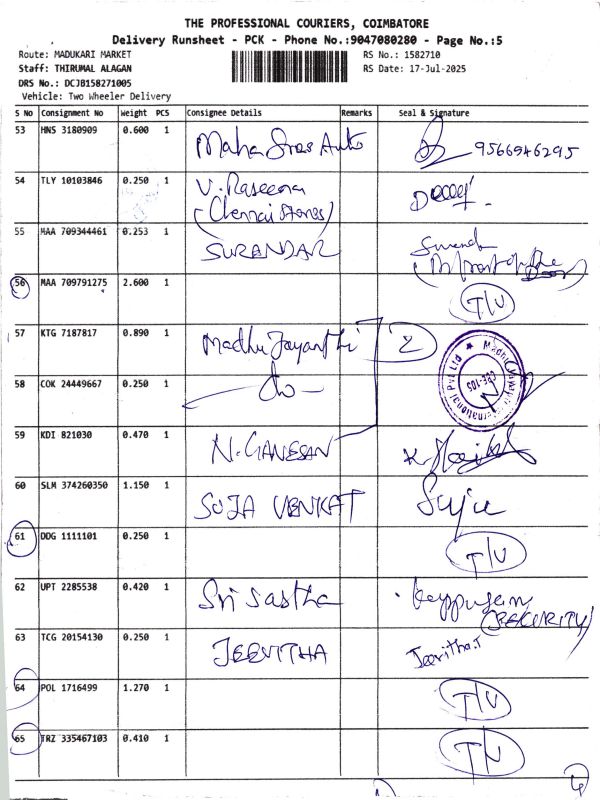 THE PROFESSIONAL COURIERS, COIMBATORE
Delivery Runsheet - PCK - Phone No.:9047080280 - Page No.:5
Route: MADUKARI MARKET RS No.: 1582710
Staff: THIRUMAL ALAGAN RS Date: 17-Jul-2025
DRS No.: DCJB158271005
Vehicle: Two Wheeler Delivery
S No Consignment No Weight PCS Consignee Details Remarks Seal & Signature
53 HNS 3180909 0.600 1 Maha Sras Auto 9566946295
54 TLY 10103846 0.250 1 V. Raseena
(Chennai Stores)
55 MAA 709344461 0.253 1 SURENDAR Surend
(In front of the Door)
56 MAA 709791275 2.600 1 T/U
57 KTG 7187817 0.890 1 Madhu Jayanthi 2
58 COK 24449667 0.250 1 do
59 KDI 821030 0.470 1 N. GANESAN
60 SLM 374260350 1.150 1 SUJA VENKAT Suja
61 DDG 1111101 0.250 1 T/U
62 UPT 2285538 0.420 1 Sri Sastha Karppusam
(SECURITY)
63 TCG 20154130 0.250 1 JEEVITHA Jeevitha.T
64 POL 1716499 1.270 1 T/U
65 TRZ 335467103 0.410 1 T/U